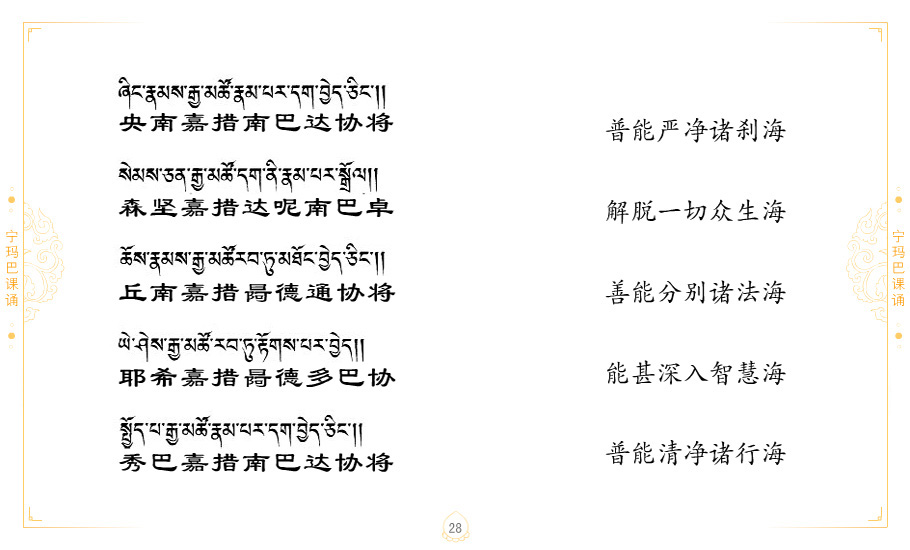 ཞིང་རྣམས་རྒྱ་མཚོ་རྣམ་པར་དག་བྱེད་ཅིང་།།
央南嘉措南巴达协将
普能严净诸刹海
སེམས་ཅན་རྒྱ་མཚོ་དག་ནི་རྣམ་པར་སྒྲོལ།།
森坚嘉措达呢南巴卓
解脱一切众生海
ཆོས་རྣམས་རྒྱ་མཚོ་རབ་ཏུ་མཐོང་བྱེད་ཅིང་།།
丘南嘉措噶德通协将
善能分别诸法海
ཡེ་ཤེས་རྒྱ་མཚོ་རབ་ཏུ་རྟོགས་པར་བྱེད།།
耶希嘉措噶德多巴协
能甚深入智慧海
སྤྱོད་པ་རྒྱ་མཚོ་རྣམ་པར་དག་བྱེད་ཅིང་།།
秀巴嘉措南巴达协将
普能清净诸行海
宁玛巴课诵
宁玛巴课诵
28